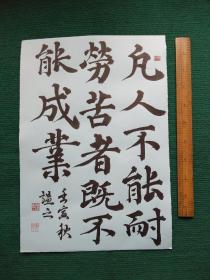 凡人不能耐
勞苦者既不
能成業
壬寅秋